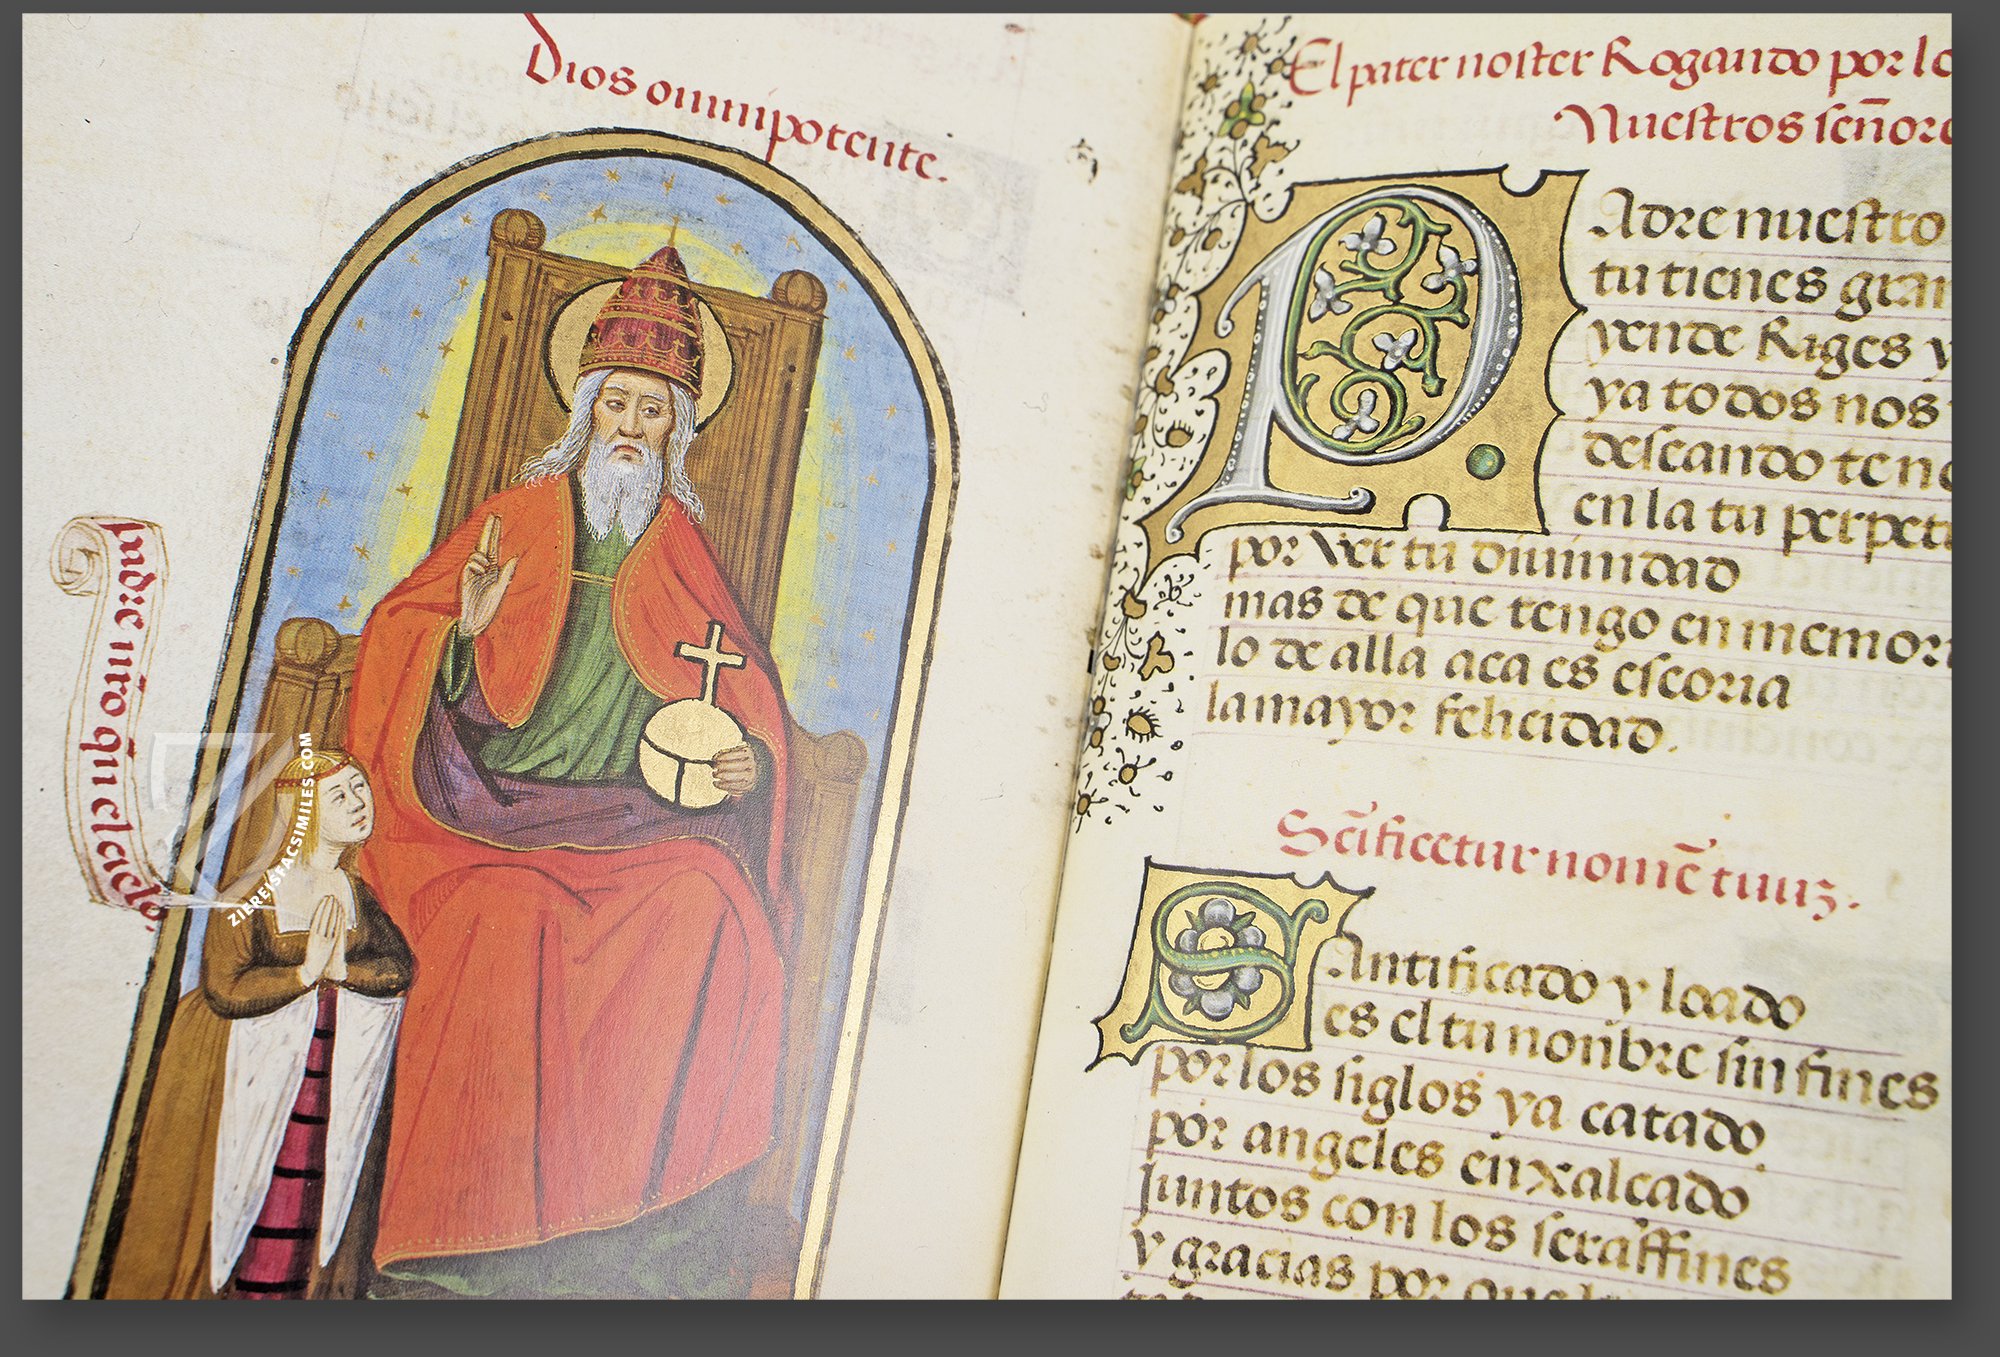 Dios omnipotente.
padre nr̃o q̃ in celis
ZIEREISFACSIMILES.COM
El pater noster Rogando por lo
Nuestros señore
PAdre nuestro
tu tienes gran
yende Riges y
ya todos nos
deseando tene
en la tu perpetu
por Ver tu diuinidad
mas de que tengo en memori
lo de alla aca es escoria
la mayor felicidad.
Scĩficetur nomẽ tuuz.
SAntificado y loado
es el tu nonbre sin fines
por los siglos ya catado
por angeles enxalcado
Juntos con los seraffines
y gracias por que